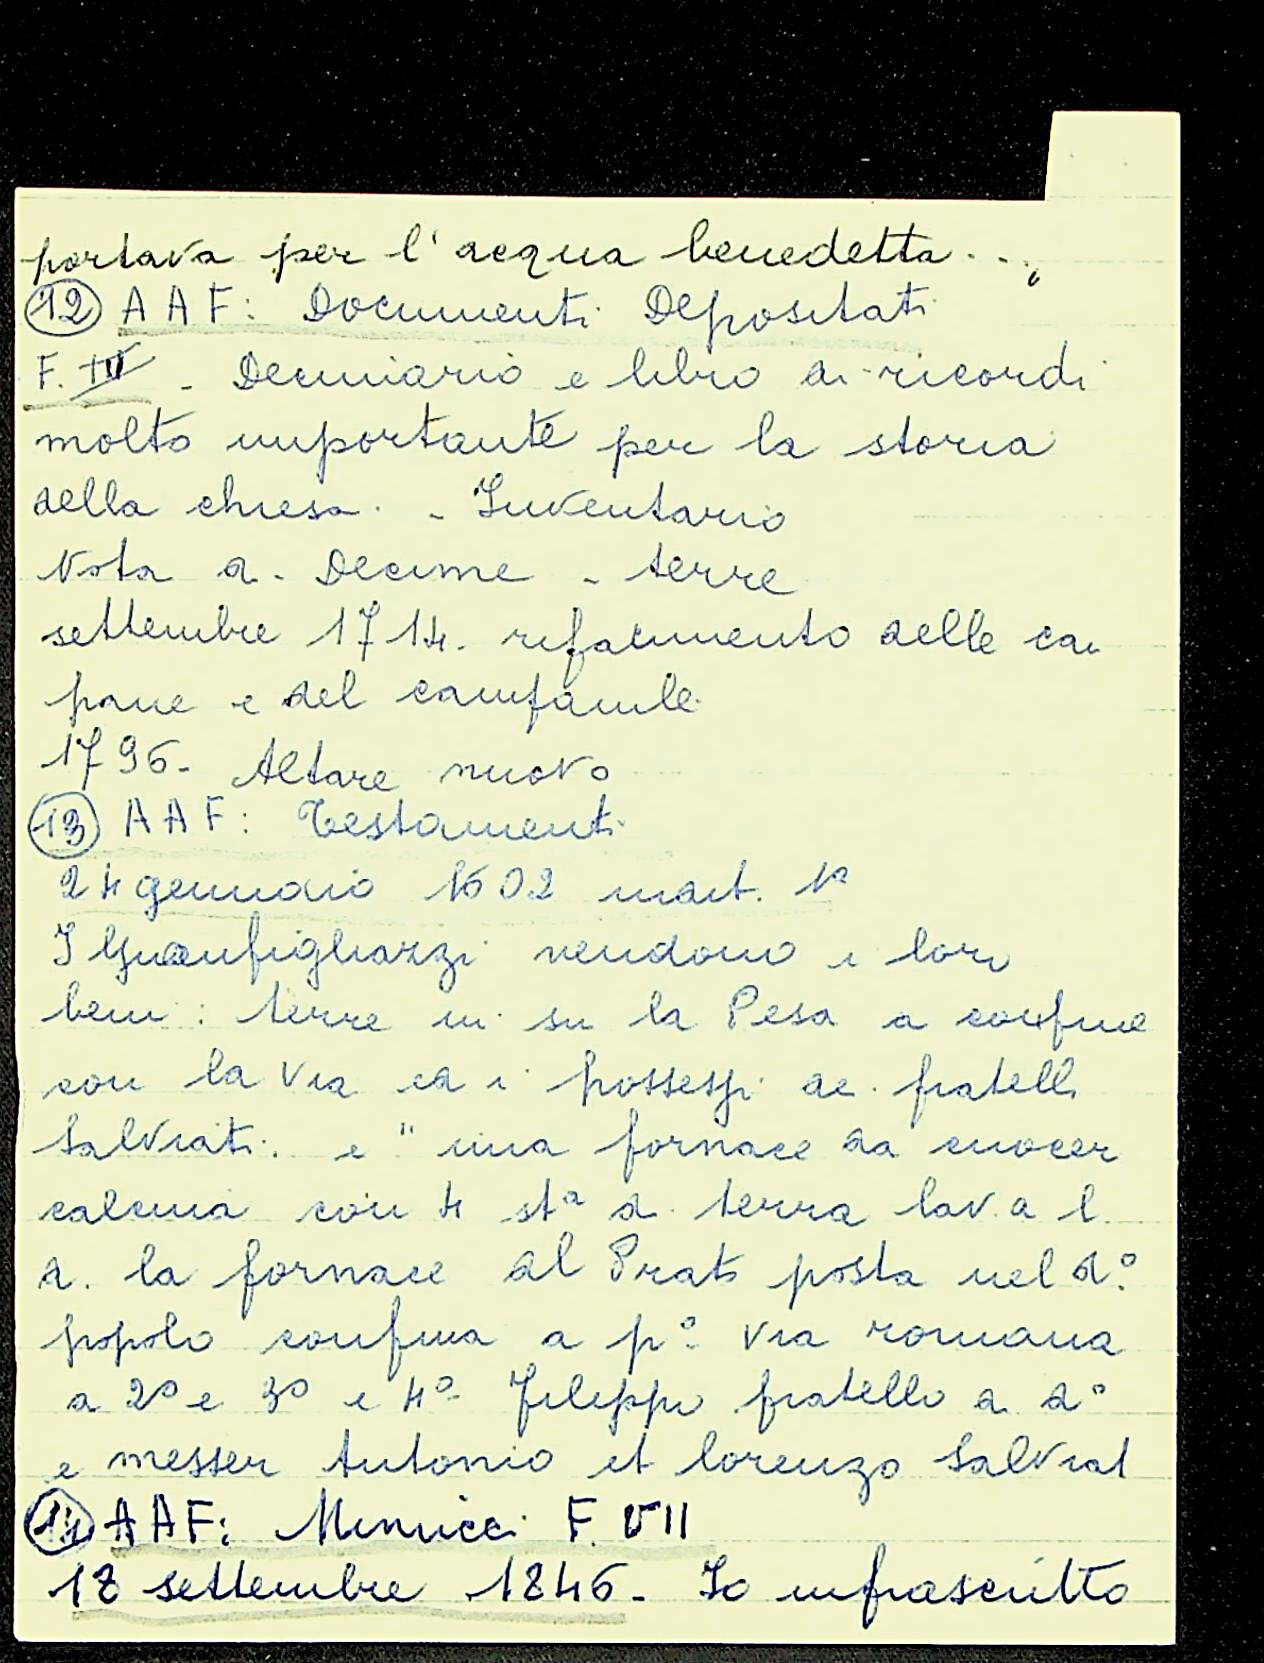 portava per l'acqua benedetta...,
12 AAF: Documenti Depositati
F. IV - Decimario e libro di ricordi
molto importante per la storia
della chiesa. - Inventario
Nota di Decime - terre
settembre 1714. rifacimento delle cam
pane e del campanile
1796. Altare nuovo
13 AAF: Testamenti
24 gennaio 1602 1a
I Gianfigliazzi vendono i loro
beni: terre in su la Pesa a confine
con la via ed i possessi de fratelli
Salviati. e " una fornace da cuocer
calcina con 4 sta di terra lav. a l.
d. la fornace al Prato posta nel do.
popolo confina a po. via romana
a 2o e 3o e 4o Filippo fratello d. do
e messer Antonio et lorenzo Salviati
14 AAF: Minucci F. VII
18 settembre 1846. Io infrascritto